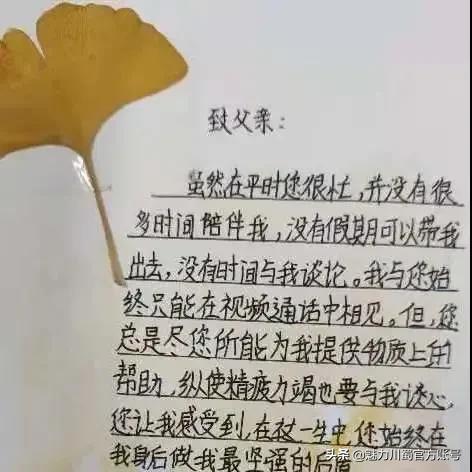 致父亲：
虽然在平时您很忙，并没有很
多时间陪伴我，没有假期可以带我
出去，没有时间与我谈论。我与您始
终只能在视频通话中相见。但，您
总是尽您所能为我提供物质上的
帮助，纵使精疲力竭也要与我谈心，
您让我感受到，在这一生中，您始终在
我身后做我最坚强的后盾
头条 @魅力川蜀官方账号